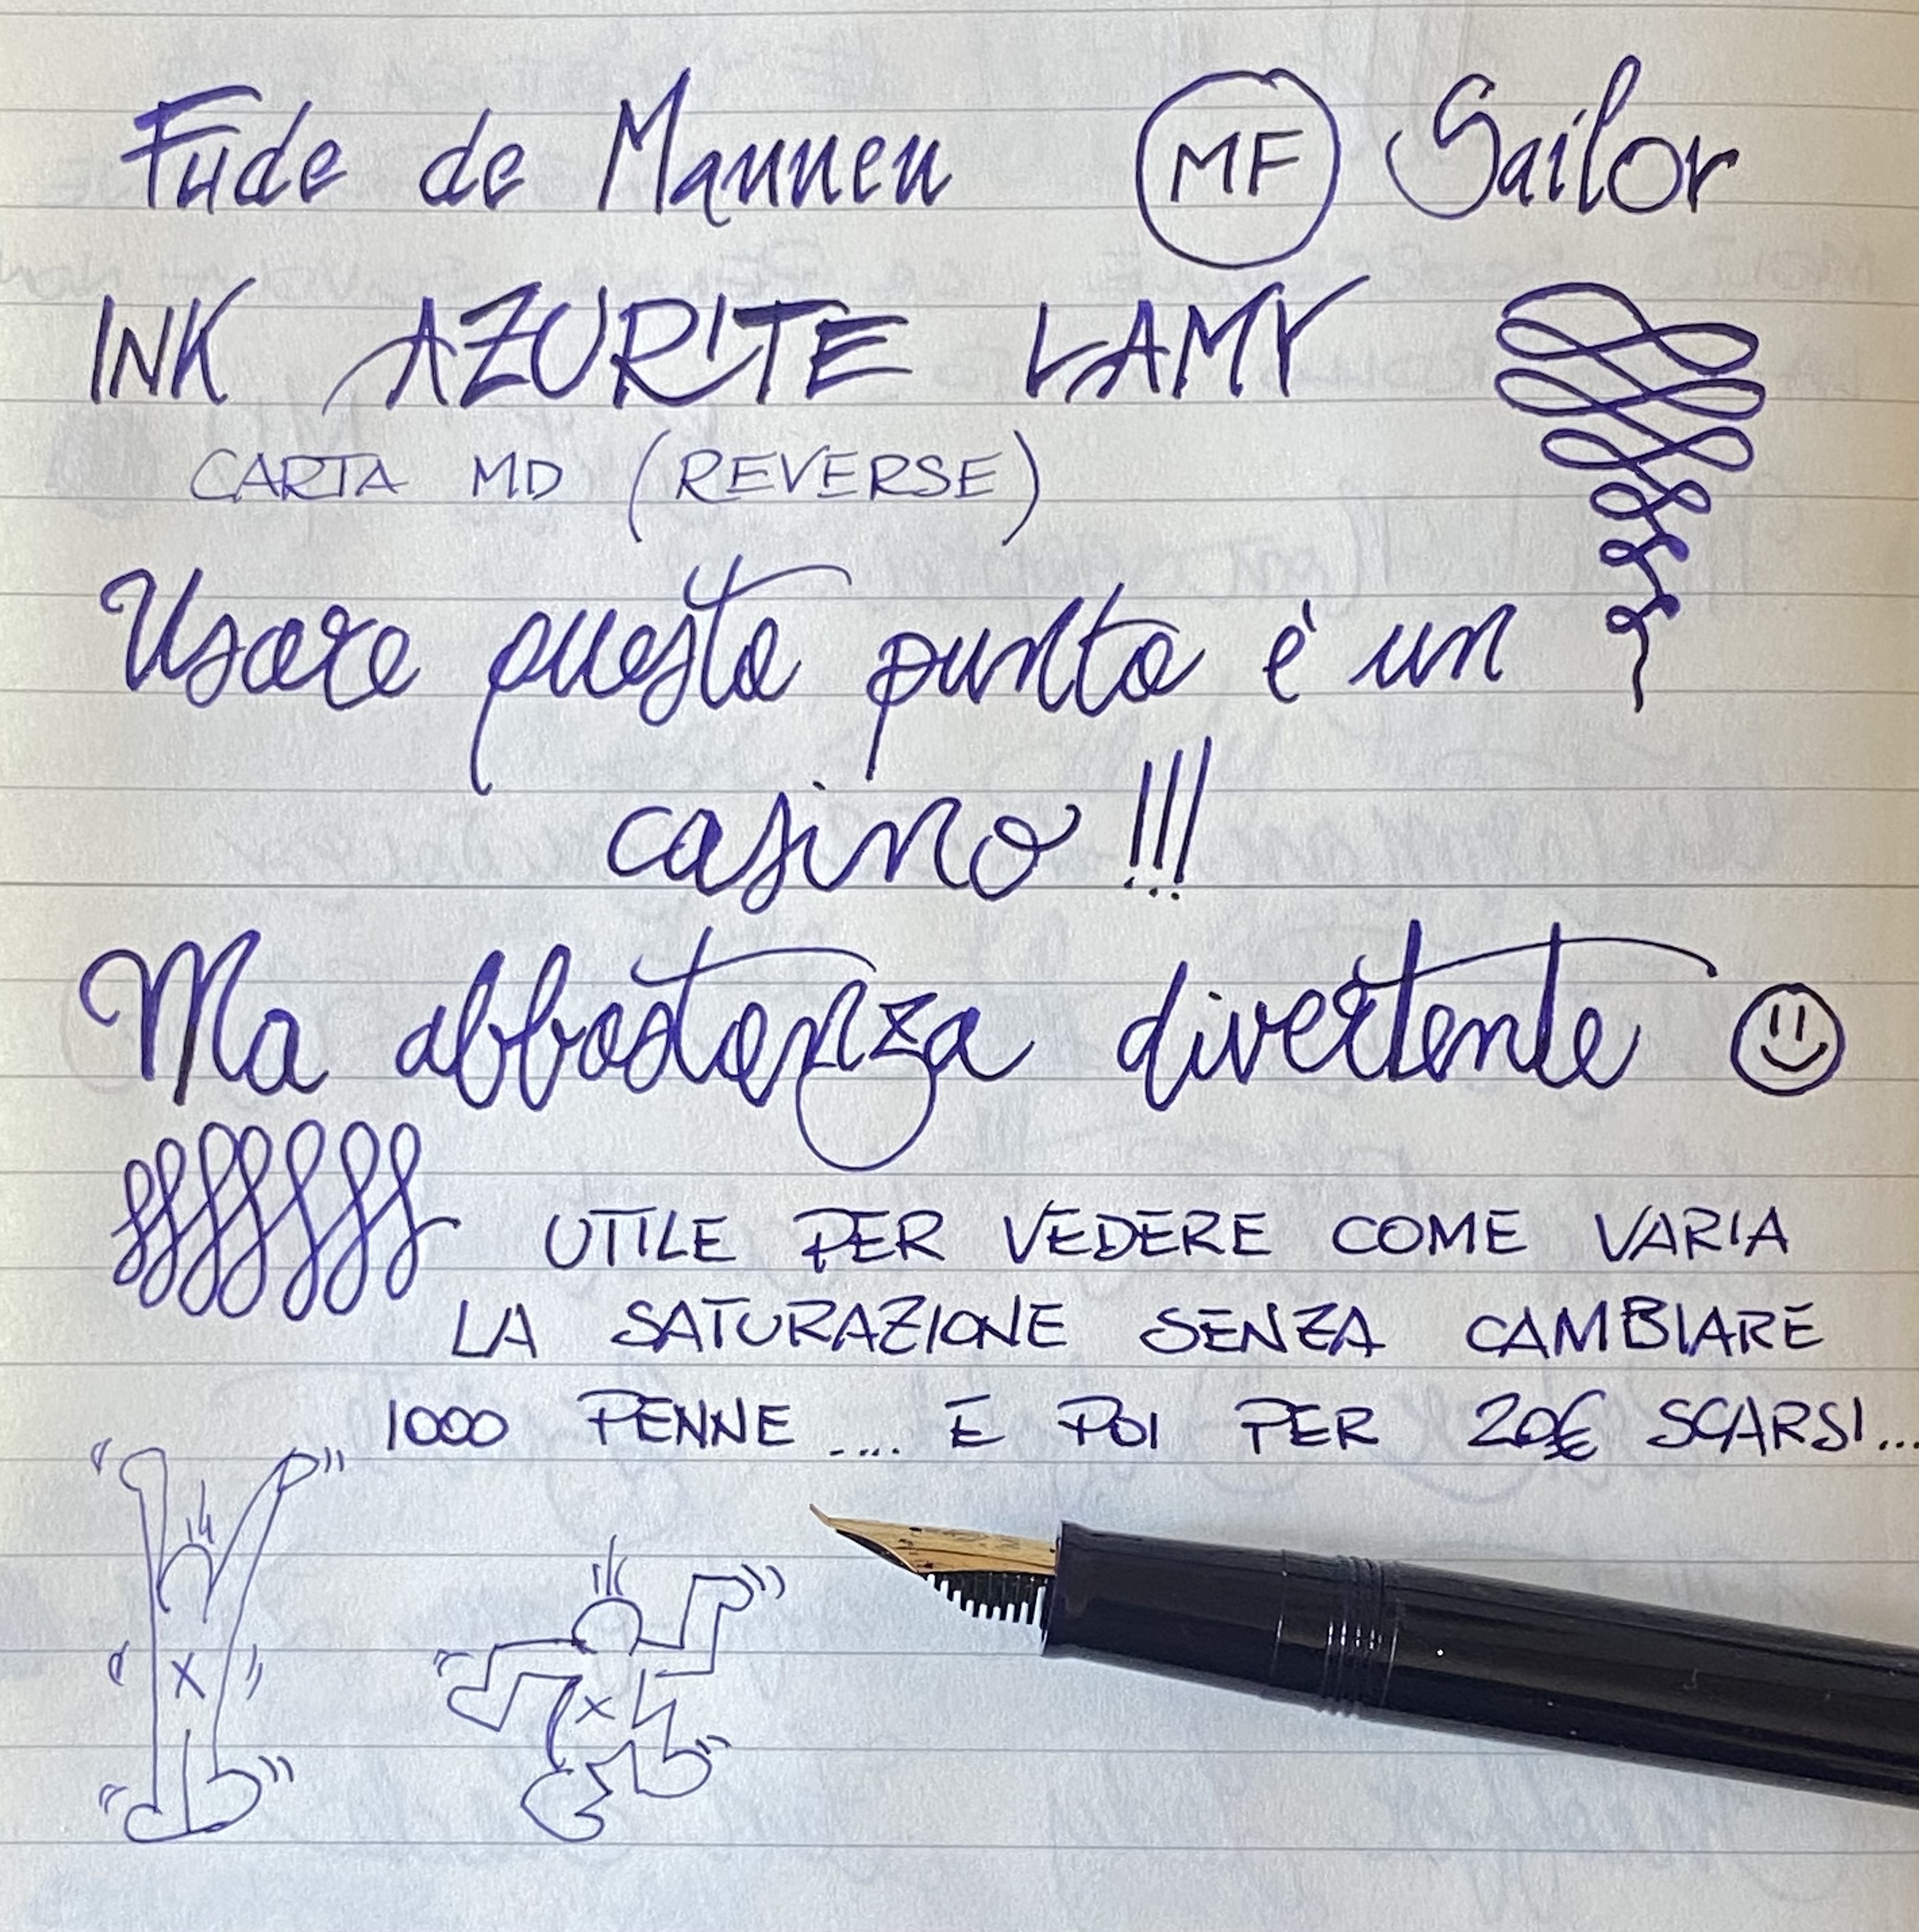 Fude de Mannen MF Sailor
INK AZURITE LAMY
CARTA MD (REVERSE)
Usare questo punto è un
casino !!!
Ma abbastanza divertente
UTILE PER VEDERE COME VARIA
LA SATURAZIONE SENZA CAMBIARE
1000 PENNE .... E POI PER 20€ SCARSI...